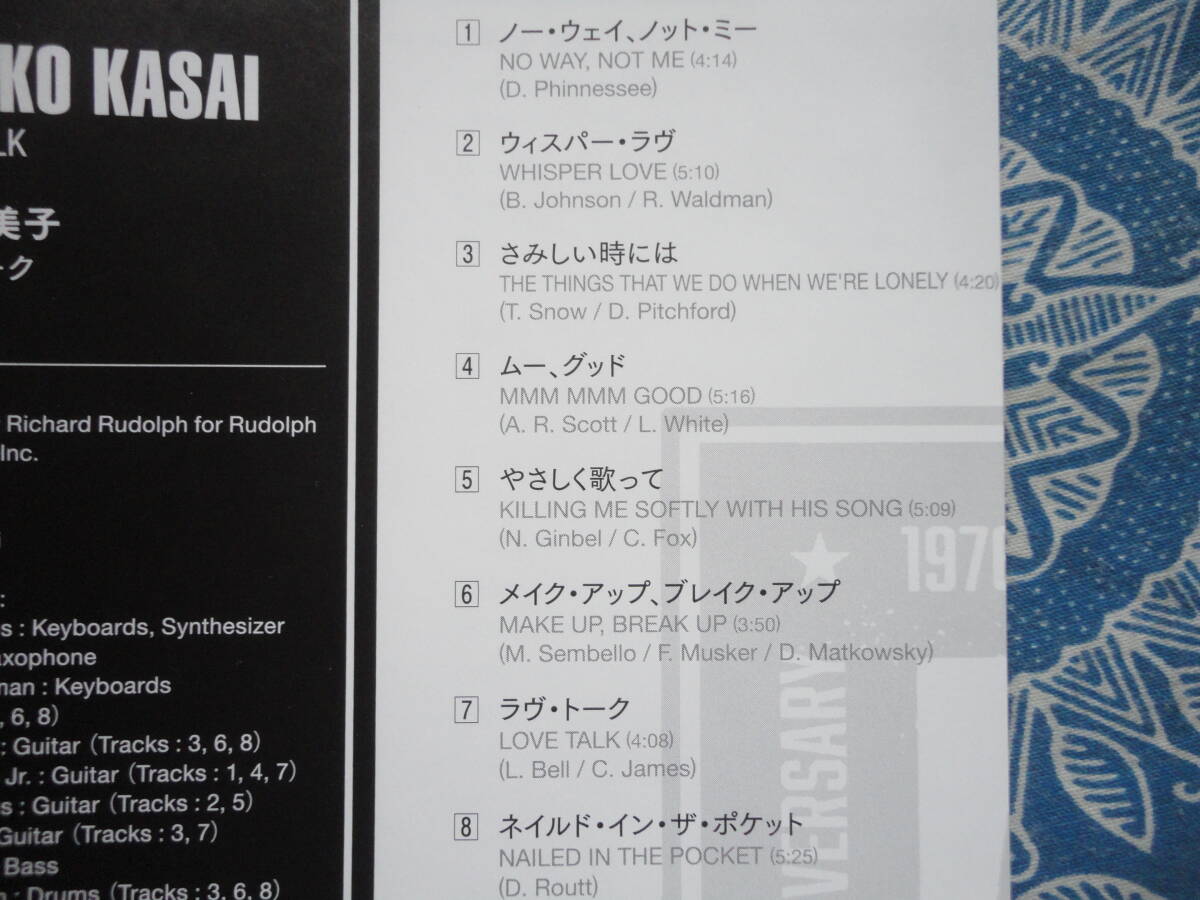 KO KASAI
LK
美子
ーク
Richard Rudolph for Rudolph
Inc.
:
s : Keyboards, Synthesizer
axophone
man : Keyboards
, 6, 8)
: Guitar (Tracks : 3, 6, 8)
Jr. : Guitar (Tracks : 1, 4, 7)
s : Guitar (Tracks : 2, 5)
Guitar (Tracks : 3, 7)
Bass
n : Drums (Tracks : 3, 6, 8)
1 ノー・ウェイ、ノット・ミー
NO WAY, NOT ME (4:14)
(D. Phinnessee)
2 ウィスパー・ラヴ
WHISPER LOVE (5:10)
(B. Johnson / R. Waldman)
3 さみしい時には
THE THINGS THAT WE DO WHEN WE'RE LONELY (4:20)
(T. Snow / D. Pitchford)
4 ムー、グッド
MMM MMM GOOD (5:16)
(A. R. Scott / L. White)
5 やさしく歌って
KILLING ME SOFTLY WITH HIS SONG (5:09)
(N. Ginbel / C. Fox)
6 メイク・アップ、ブレイク・アップ
MAKE UP, BREAK UP (3:50)
(M. Sembello / F. Musker / D. Matkowsky)
7 ラヴ・トーク
LOVE TALK (4:08)
(L. Bell / C. James)
8 ネイルド・イン・ザ・ポケット
NAILED IN THE POCKET (5:25)
(D. Routt)
1970
VERSARY